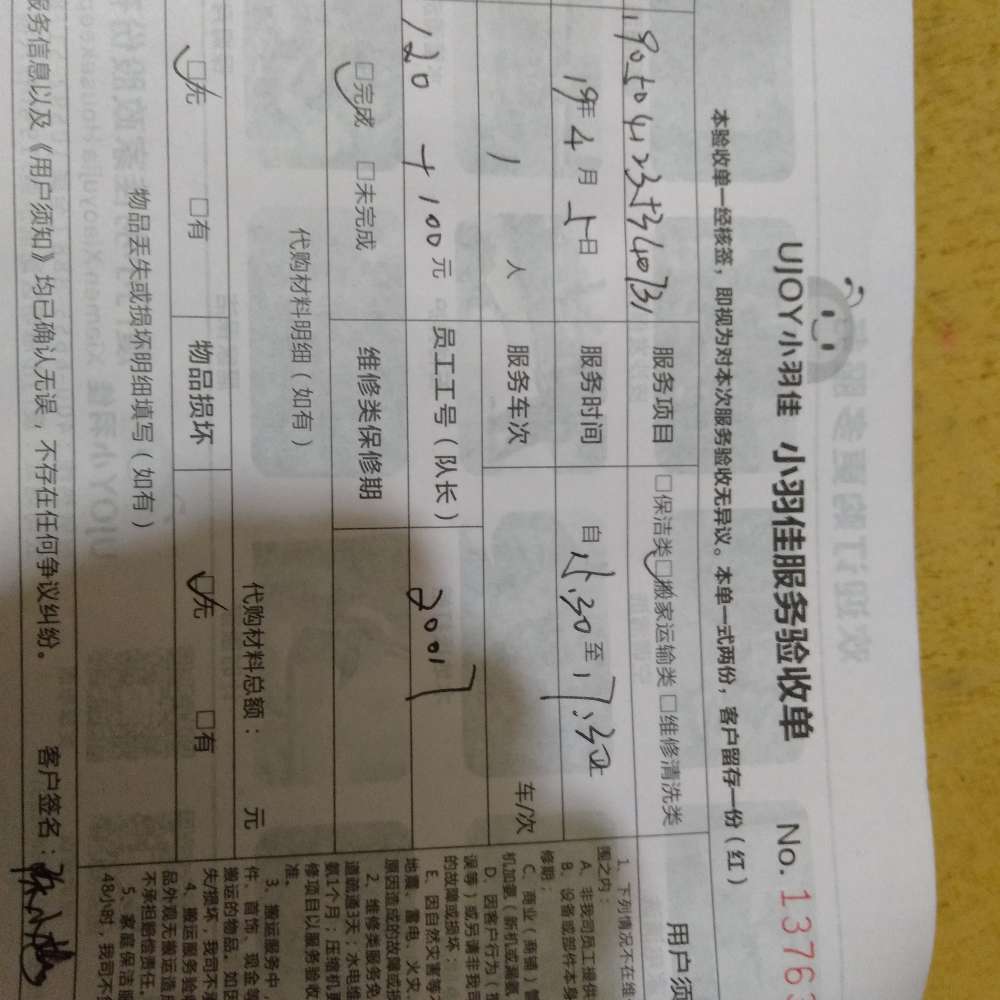 UJOY小羽佳 小羽佳服务验收单 No. 13763
本验收单一经核签，即视为对本次服务验收无异议。本单一式两份，客户留存一份（红）
服务项目 □保洁类 □搬家运输类 □维修清洗类
19年4月5日 服务时间 自 至
1人 服务车次 车/次
120+100元 员工工号（队长） 2001
□完成 □未完成 维修类保修期
代购材料明细（如有） 代购材料总额： 元
□无 □有 物品损坏 □无 □有
物品丢失或损坏明细填写（如有）
服务信息以及《用户须知》均已确认无误，不存在任何争议纠纷。 客户签名：
用户须
1、下列情况不在维
围之内：
A、非我司员工提供
B、设备或部件本身
修期；
C、商业（商铺）管
机加氨（新机或漏氨
D、因客户行为（
误等）或另请非我
的故障或损坏；
E、因自然灾害等
地震、雷电、火灾
原因造成的故障或损
2、维修类服务免
道疏通3天；水电维
氨1个月；压缩机更
修项目以服务验收
准。
3、搬运服务中，
件、首饰、现金等
搬运的物品。如因
失/损坏，我司不承
4、搬运服务验收
品外观无搬运造成
不承担赔偿责任。
5、家庭保洁服
48小时，我司不